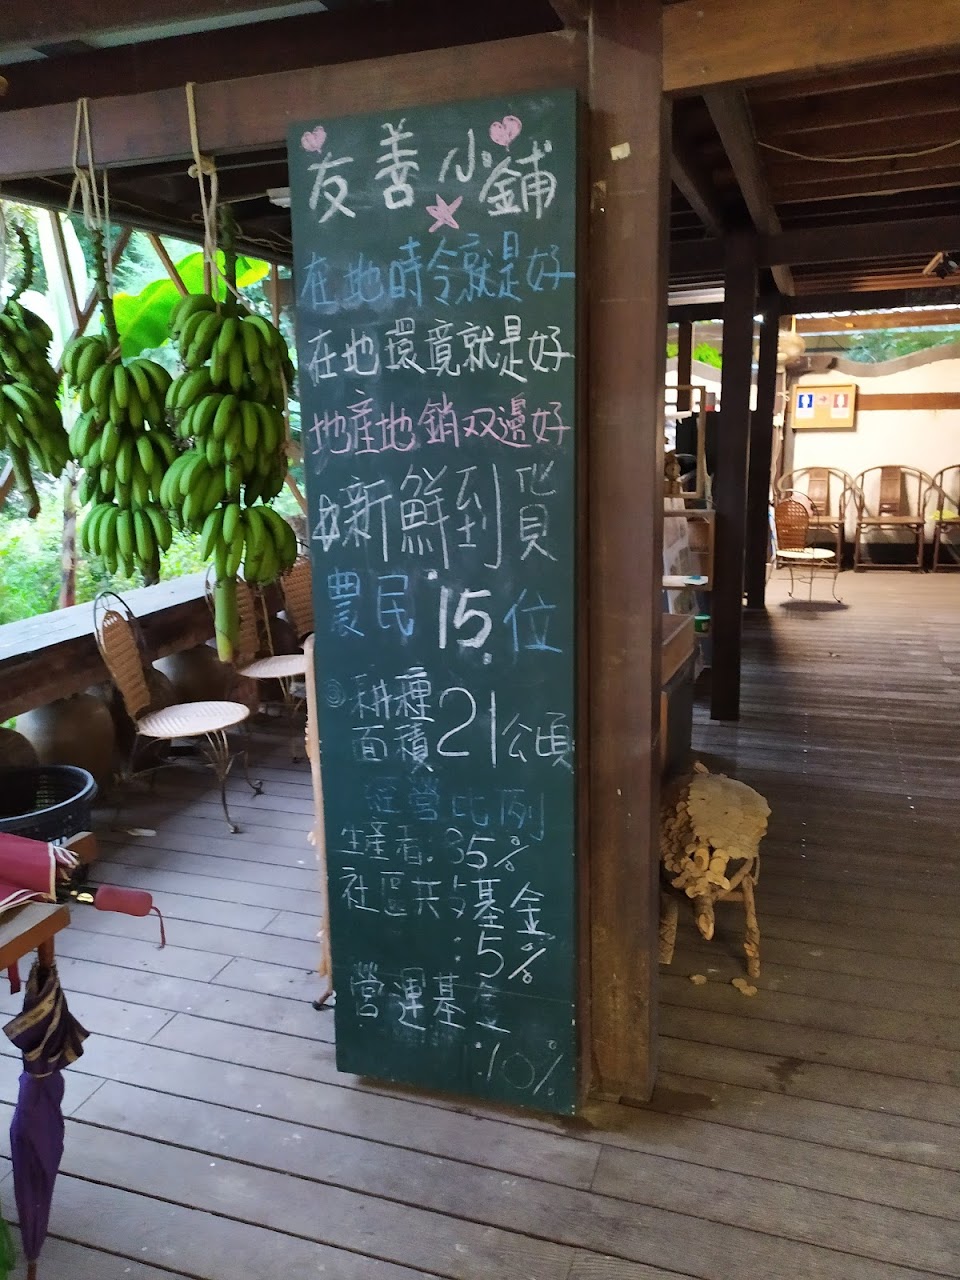 友善小鋪
在地時令就是好
在地環境就是好
地產地銷双邊好
新鮮到貨
農民15位
耕種
面積21公頃
經營比例
生產者.35%
社區共好基金
:5%
營運基金
:10%